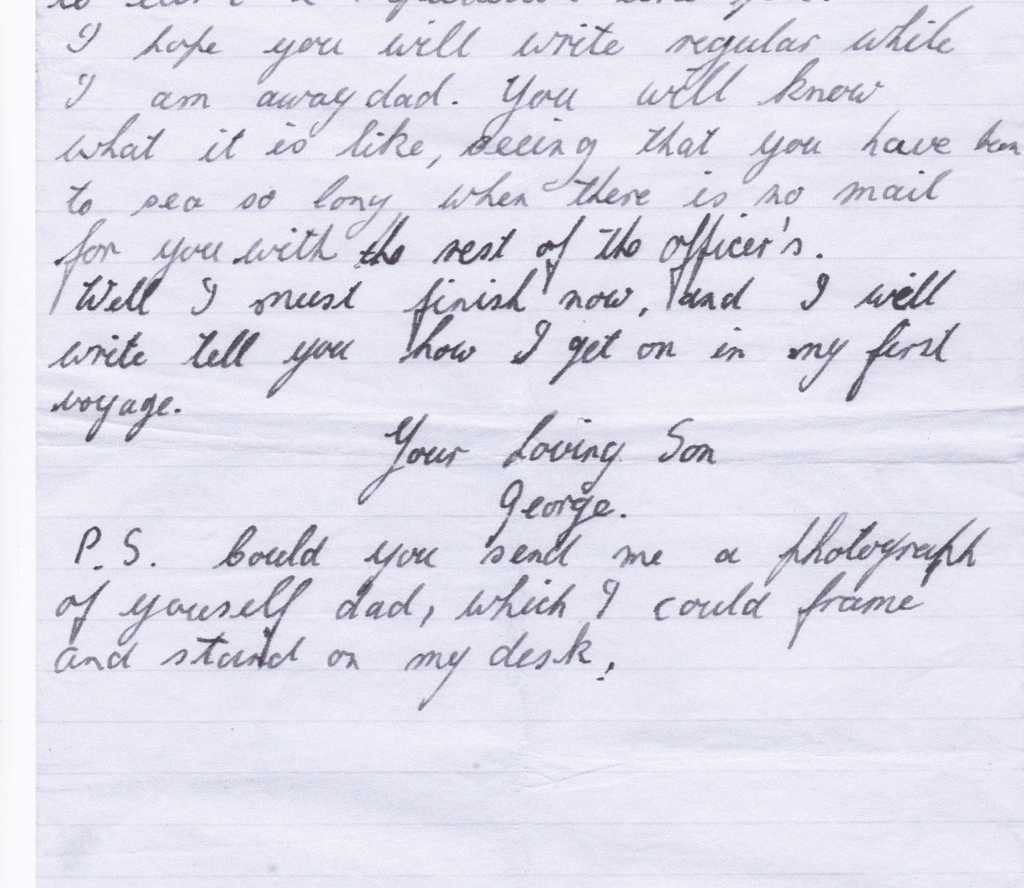 I hope you will write regular while
I am away dad. You will know
what it is like, seeing that you have been
to sea so long when there is no mail
for you with the rest of the officer's.
Well I must finish now, and I will
write tell you how I get on in my first
voyage.
Your Loving Son
George.
P.S. Could you send me a photograph
of youself dad, which I could frame
and stand on my desk.